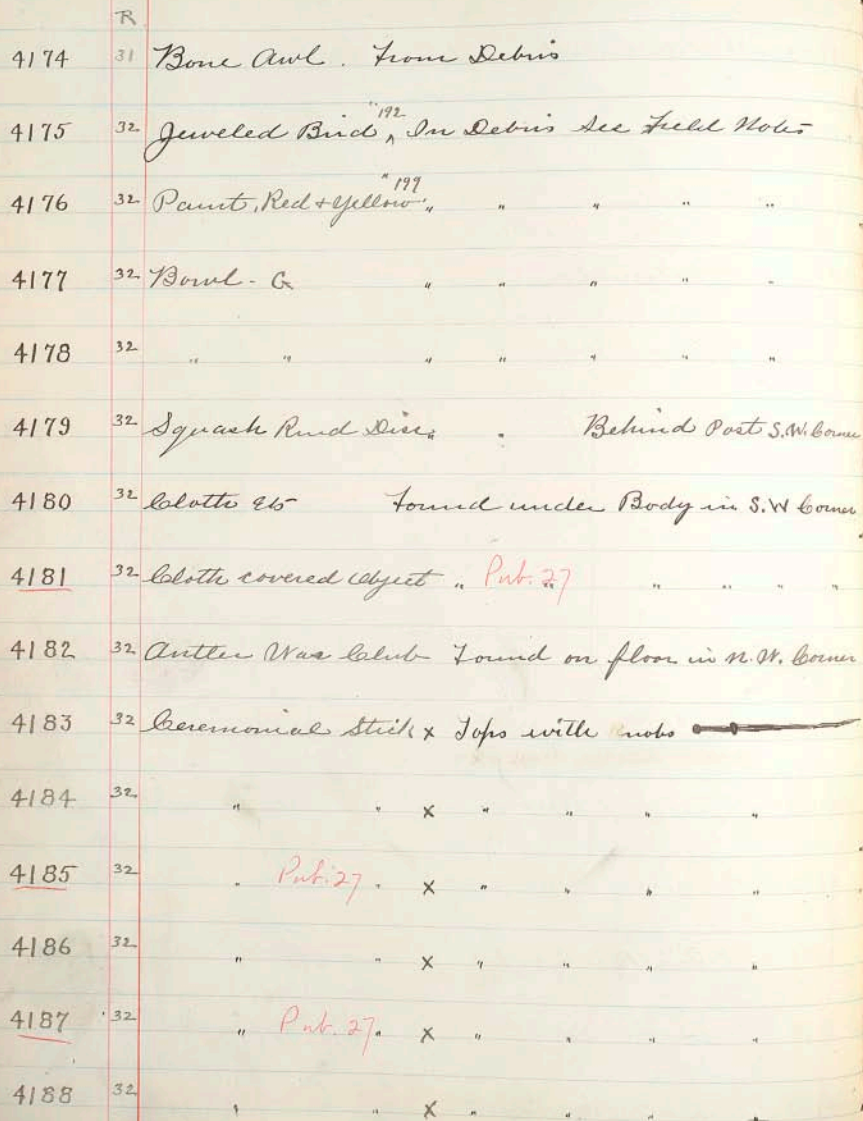 R
4174 31 Bone Awl. From Debris
4175 32 Jeweled Bird "192 ^ In Debris See Field Notes
4176 32 Paint, Red + Yellow "199 " " " " "
4177 32 Bowl - G " " " " "
4178 32 " " " " " " "
4179 32 Squash Rind Disc " " Behind Post S.W. Corner
4180 32 Cloth Etc Found under Body in S.W Corner
4181 32 Cloth covered Object " Pub. 27 " " " " "
4182 32 Antler War Club Found on floor in N.W. Corner
4183 32 Ceremonial Stick x Tops with knobs
4184 32 " " x " " " "
4185 32 " Pub. 27 " x " " " "
4186 32 " " x " " " "
4187 32 " Pub. 27 " x " " " "
4188 32 " " x " " " "